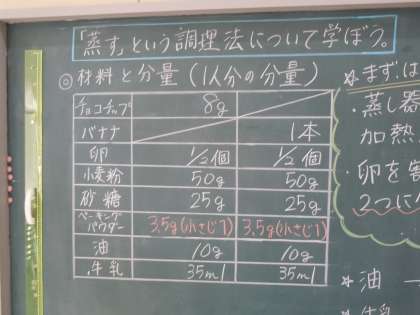 「蒸す」という調理法について学ぼう。
◎材料と分量(1人分の分量)
チョコチップ 8g
バナナ 1本
卵 1/2個 1/2個
小麦粉 50g 50g
砂糖 25g 25g
ベーキングパウダー 3.5g(小さじ1) 3.5g(小さじ1)
油 10g 10g
牛乳 35ml 35ml
★まずは
・蒸し器
加熱
・卵を割
2つに
★油
★牛乳